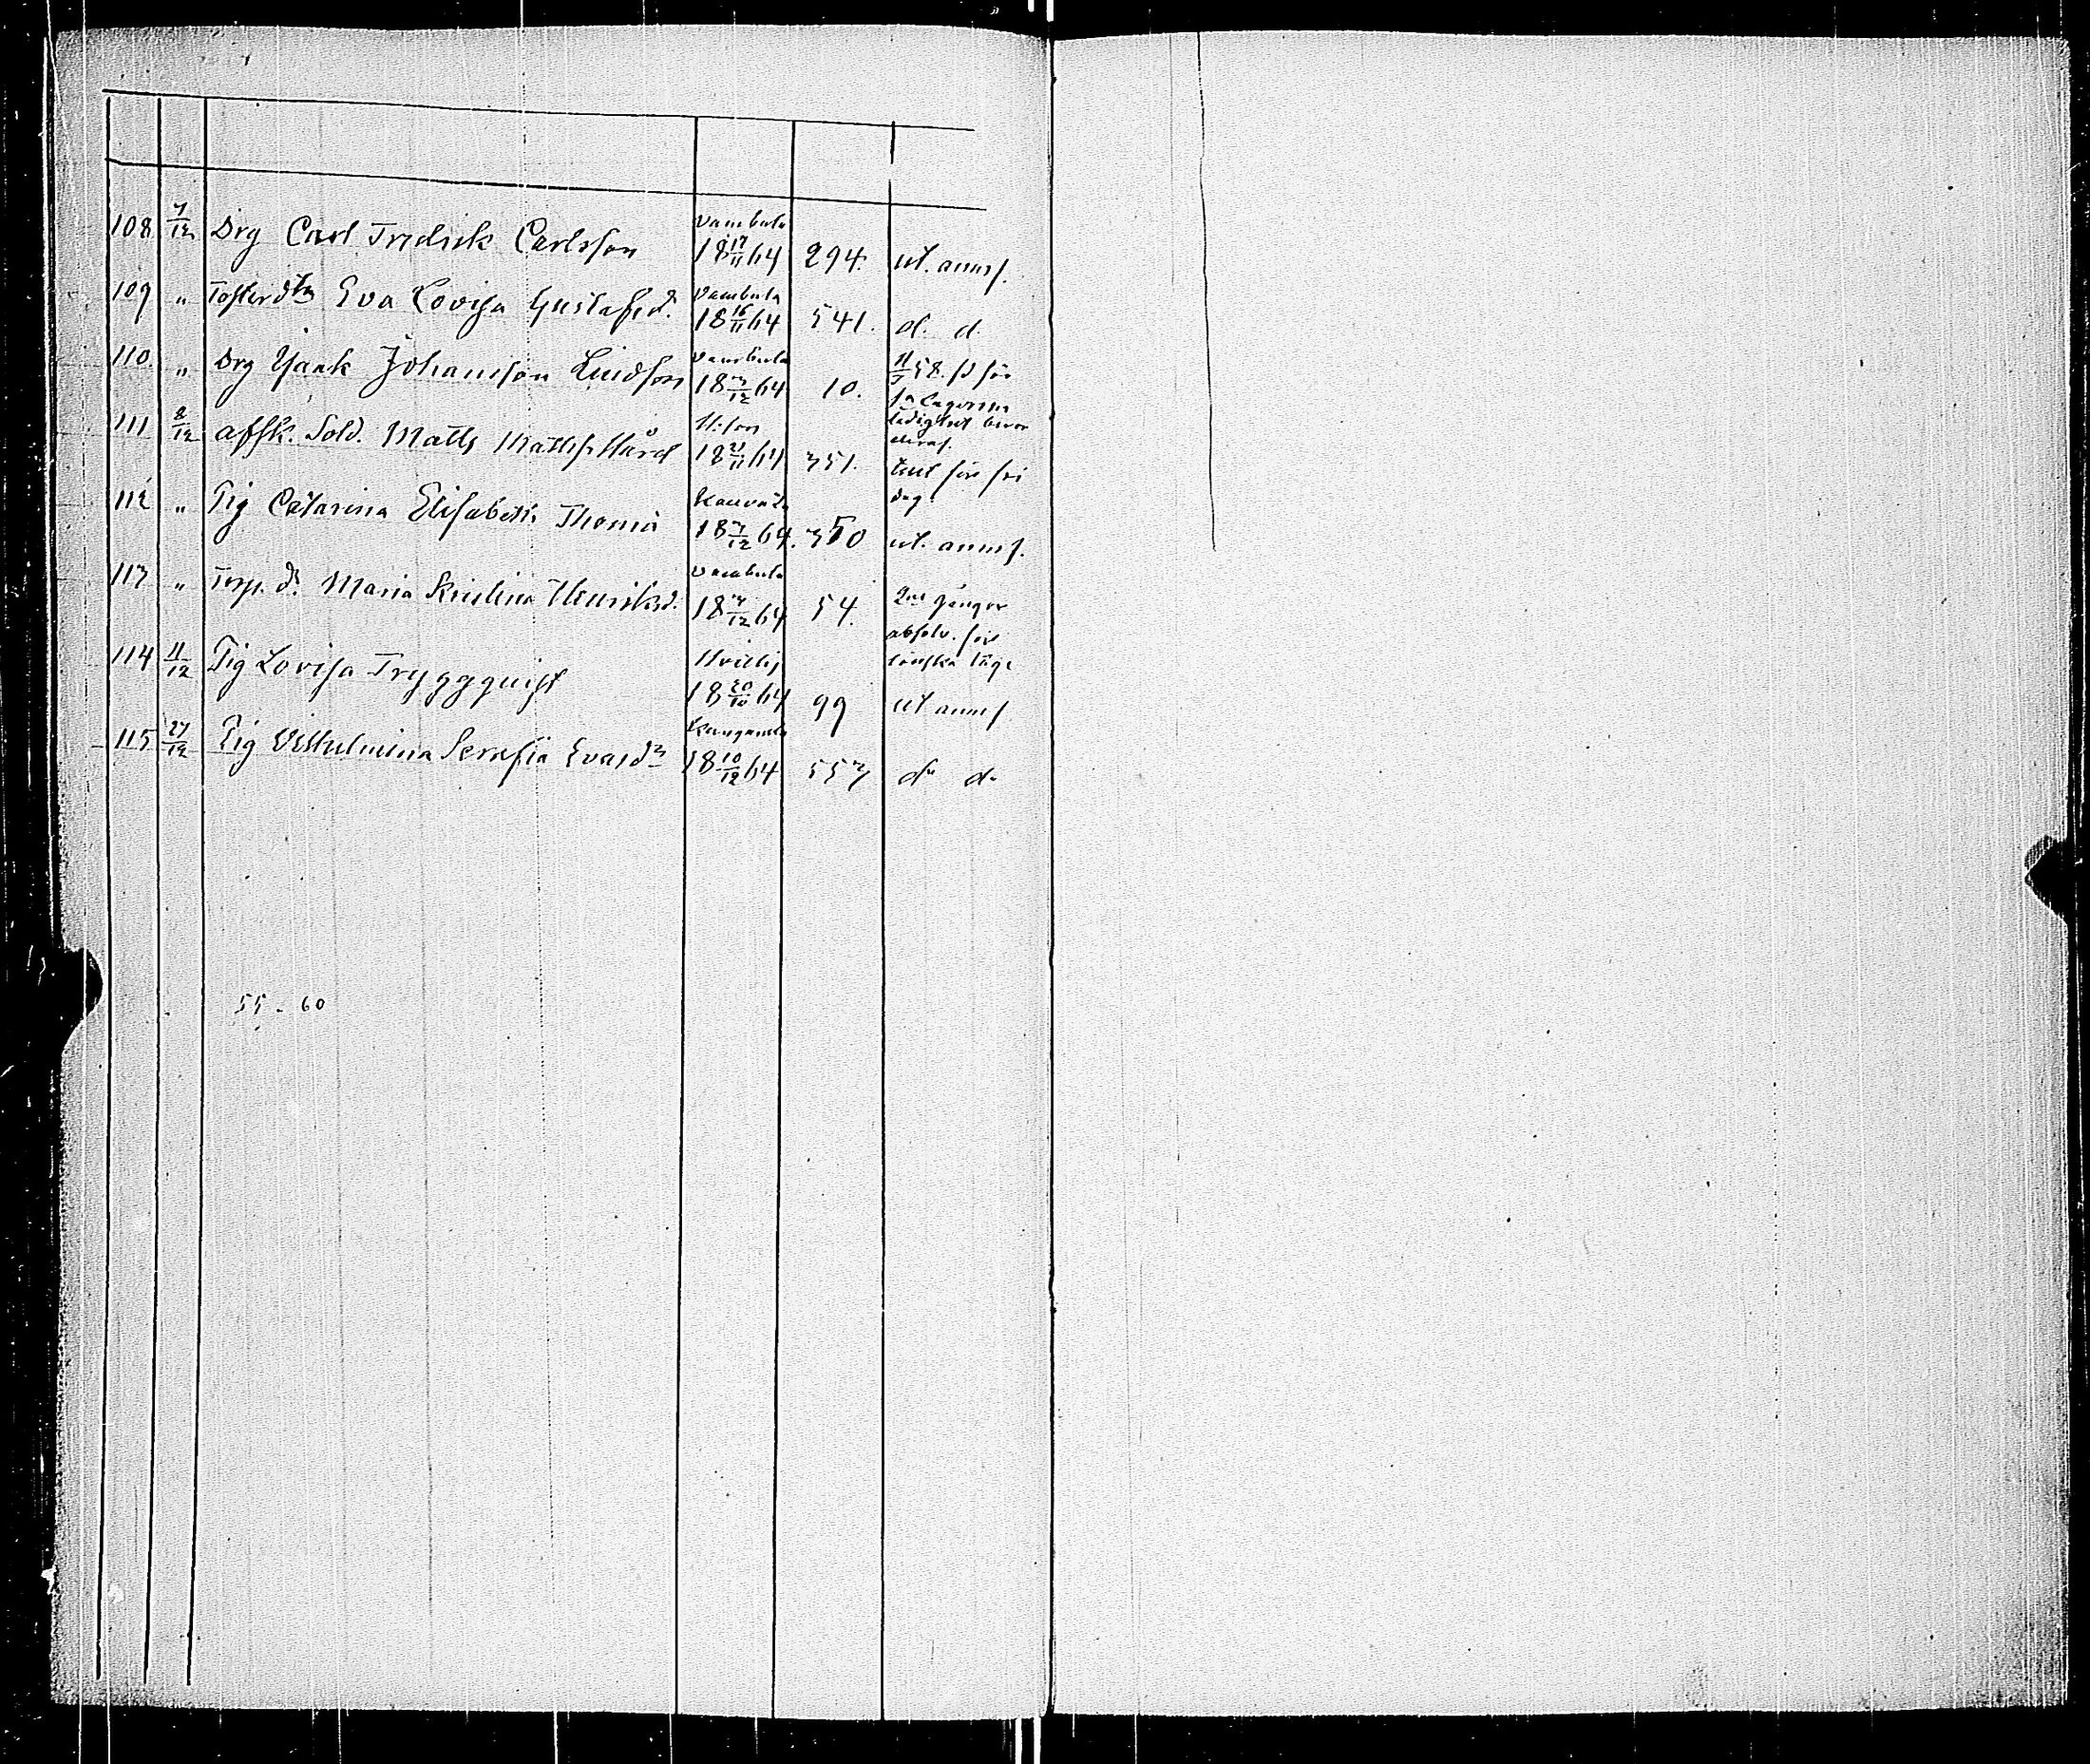 108 7/12 Drg Carl Fredrik Carlsson Vambula 18 17/11 64 294. ut. anm.
109 " Fosterdtn Eva Lovisa Gustafsd. Vambula 18 16/11 64 541. d. d.
110. " Drg Isaak Johansson Lindfors Vambula 18 3/12 64 10. 11/3 58. för
ledighet
111 8/12 affsk. Sold. Matts Mattss Hård 18 21/11 64 351. för
112 " Pig Catarina Elisabeth Thoma 18 3/12 64. 350 ut. anm.
113 " Torp. dr Maria Kristina Henriksd. Vambula 18 3/12 64 54. 2ne gånger
absolv. för
lönska läge
114 11/12 Pig Lovisa Tryggquist Hvittis 18 20/10 64 99 ut anm
115 27/12 Pig Vilhelmina Serafia Evasdr 18 10/12 64 553 do do
55 - 60